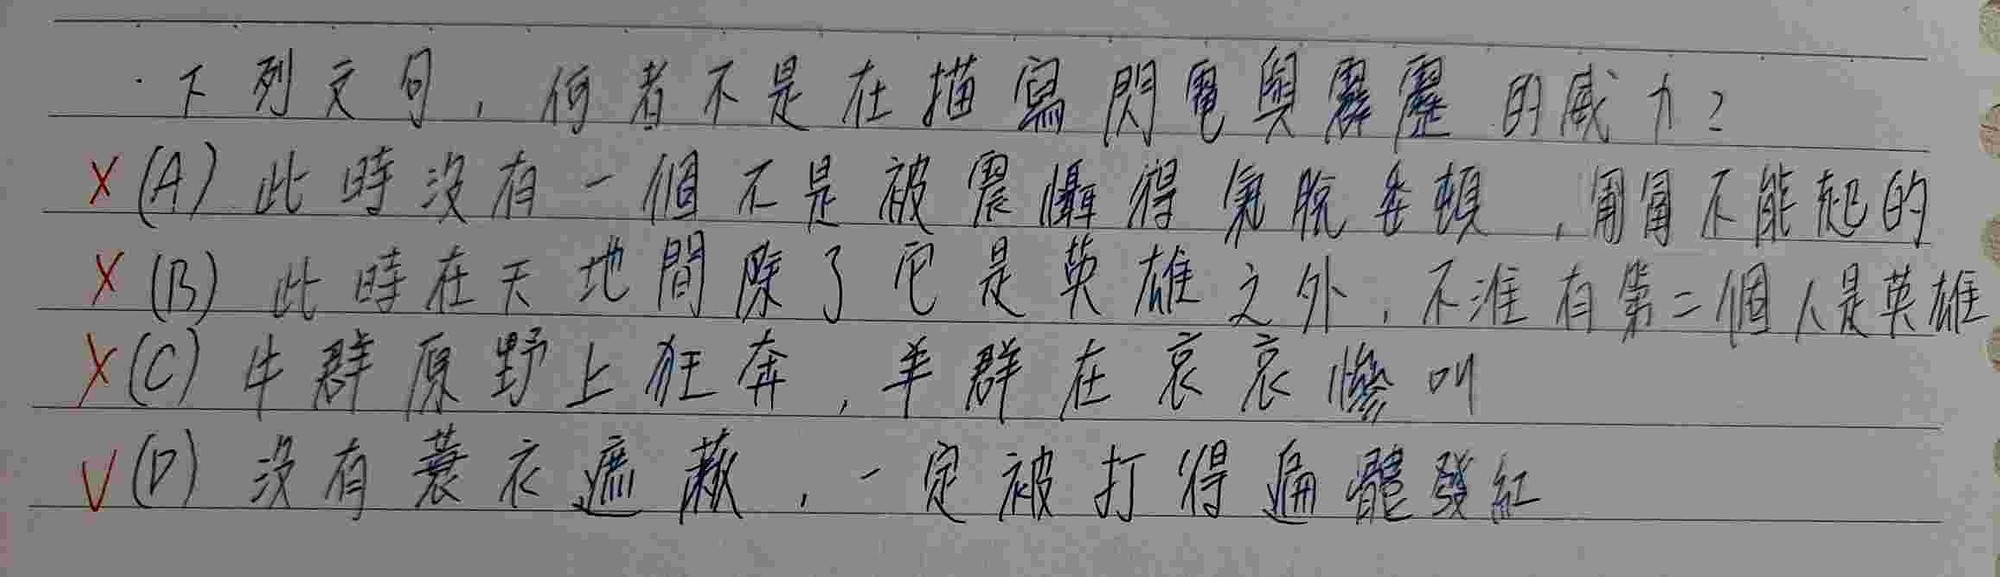 ·下列文句,何者不是在描寫閃電與霹靂的威力?
X(A)此時沒有一個不是被震懾得氣脫委頓,匍匐不能起的
X(B)此時在天地間除了它是英雄之外,不准有第二個人是英雄
X(C)牛群原野上狂奔,羊群在哀哀慘叫
V(D)沒有蓑衣遮蔽,一定被打得遍體發紅